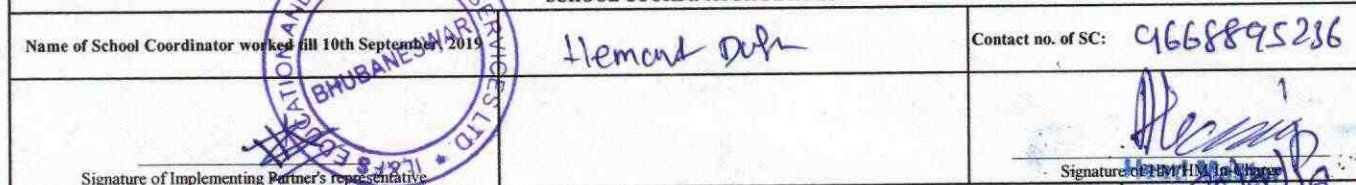 Name of School Coordinator worked till 10th September, 2019
Hemant
Contact no. of SC: 9668895236
EDUCATION AND SERVICES LTD. * IL&FS
BHUBANESWAR
Signature of Implementing Partner's representative
Signature of HM/HM In-Charge